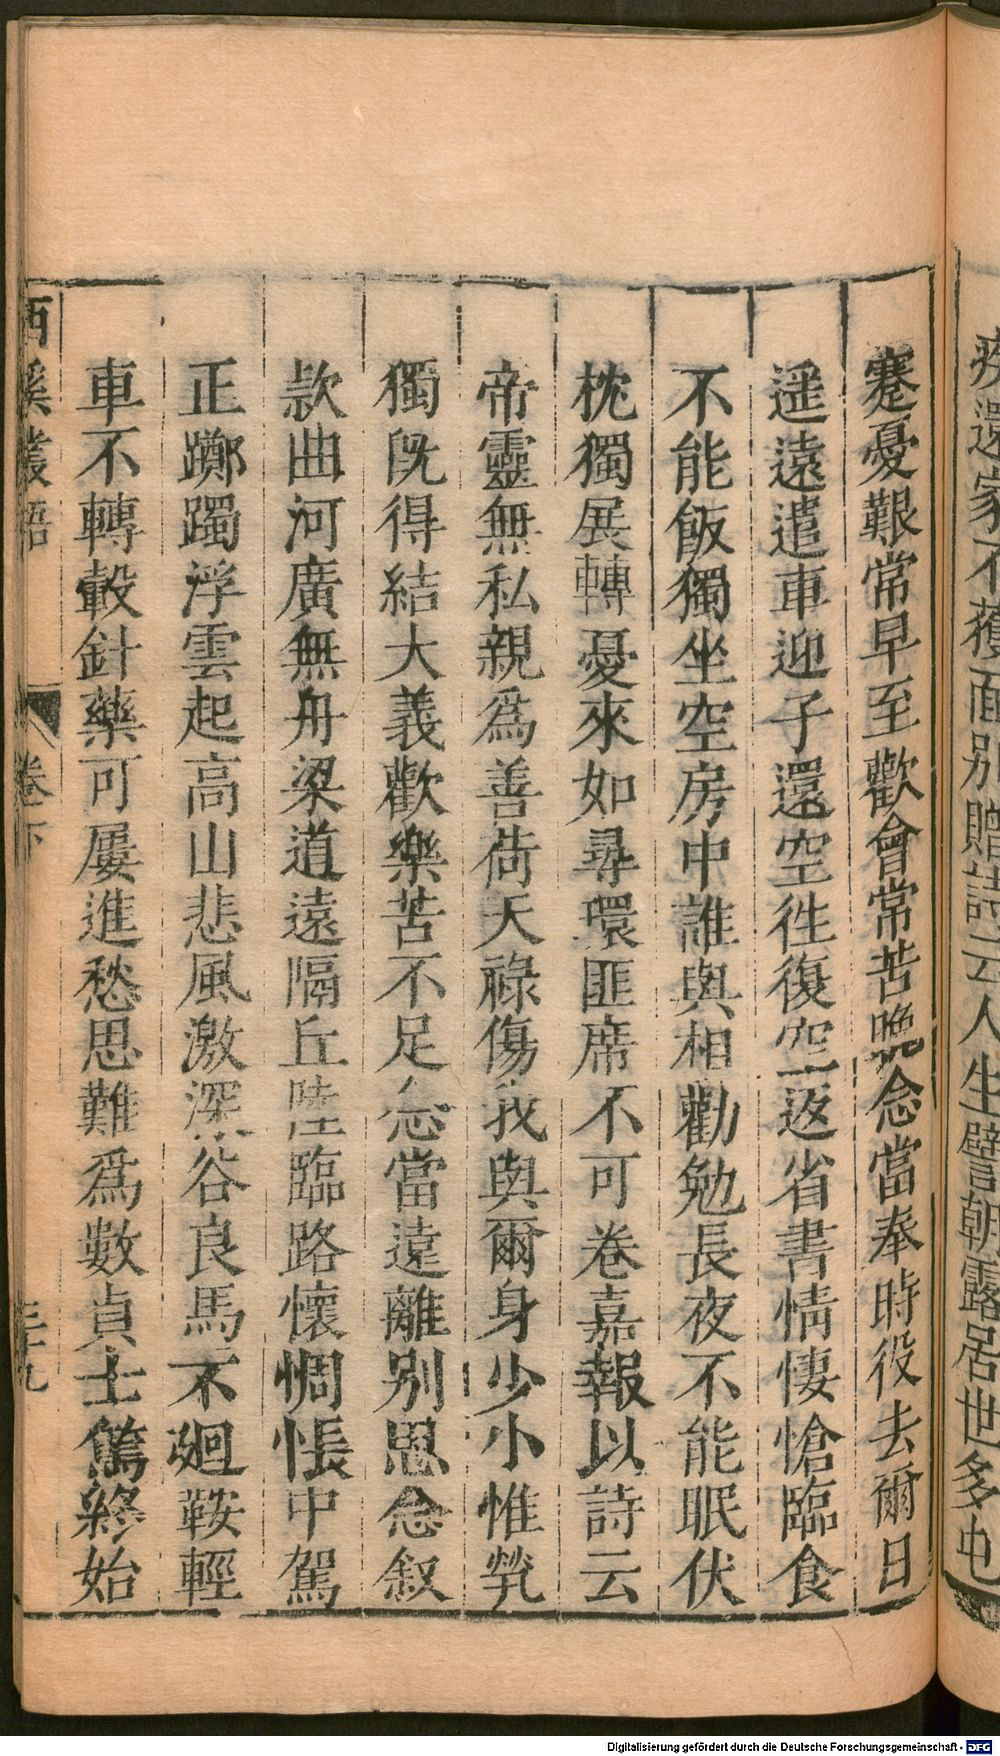 疾還家不獲面別贈詩云人生譬朝露居世多屯
蹇憂艱常早至歡會常苦晚念當奉時役去爾日
遥遠遣車迎子還空徃復空返省書情悽愴臨食
不能飯獨坐空房中誰與相勸勉長夜不能眠伏
枕獨展轉憂來如尋環匪席不可卷嘉報以詩云
帝靈無私親爲善荷天祿傷我與爾身少小惟煢
獨旣得結大義歡樂苦不足念當遠離別思念叙
款曲河廣無舟梁道遠隔丘陸臨路懷惆悵中駕
正躑躅浮雲起高山悲風激深谷良馬不廻鞍輕
車不轉轂針藥可屢進愁思難爲數貞士篤終始
西溪叢語
卷下
三十九
Digitalisierung gefördert durch die Deutsche Forschungsgemeinschaft - DFG